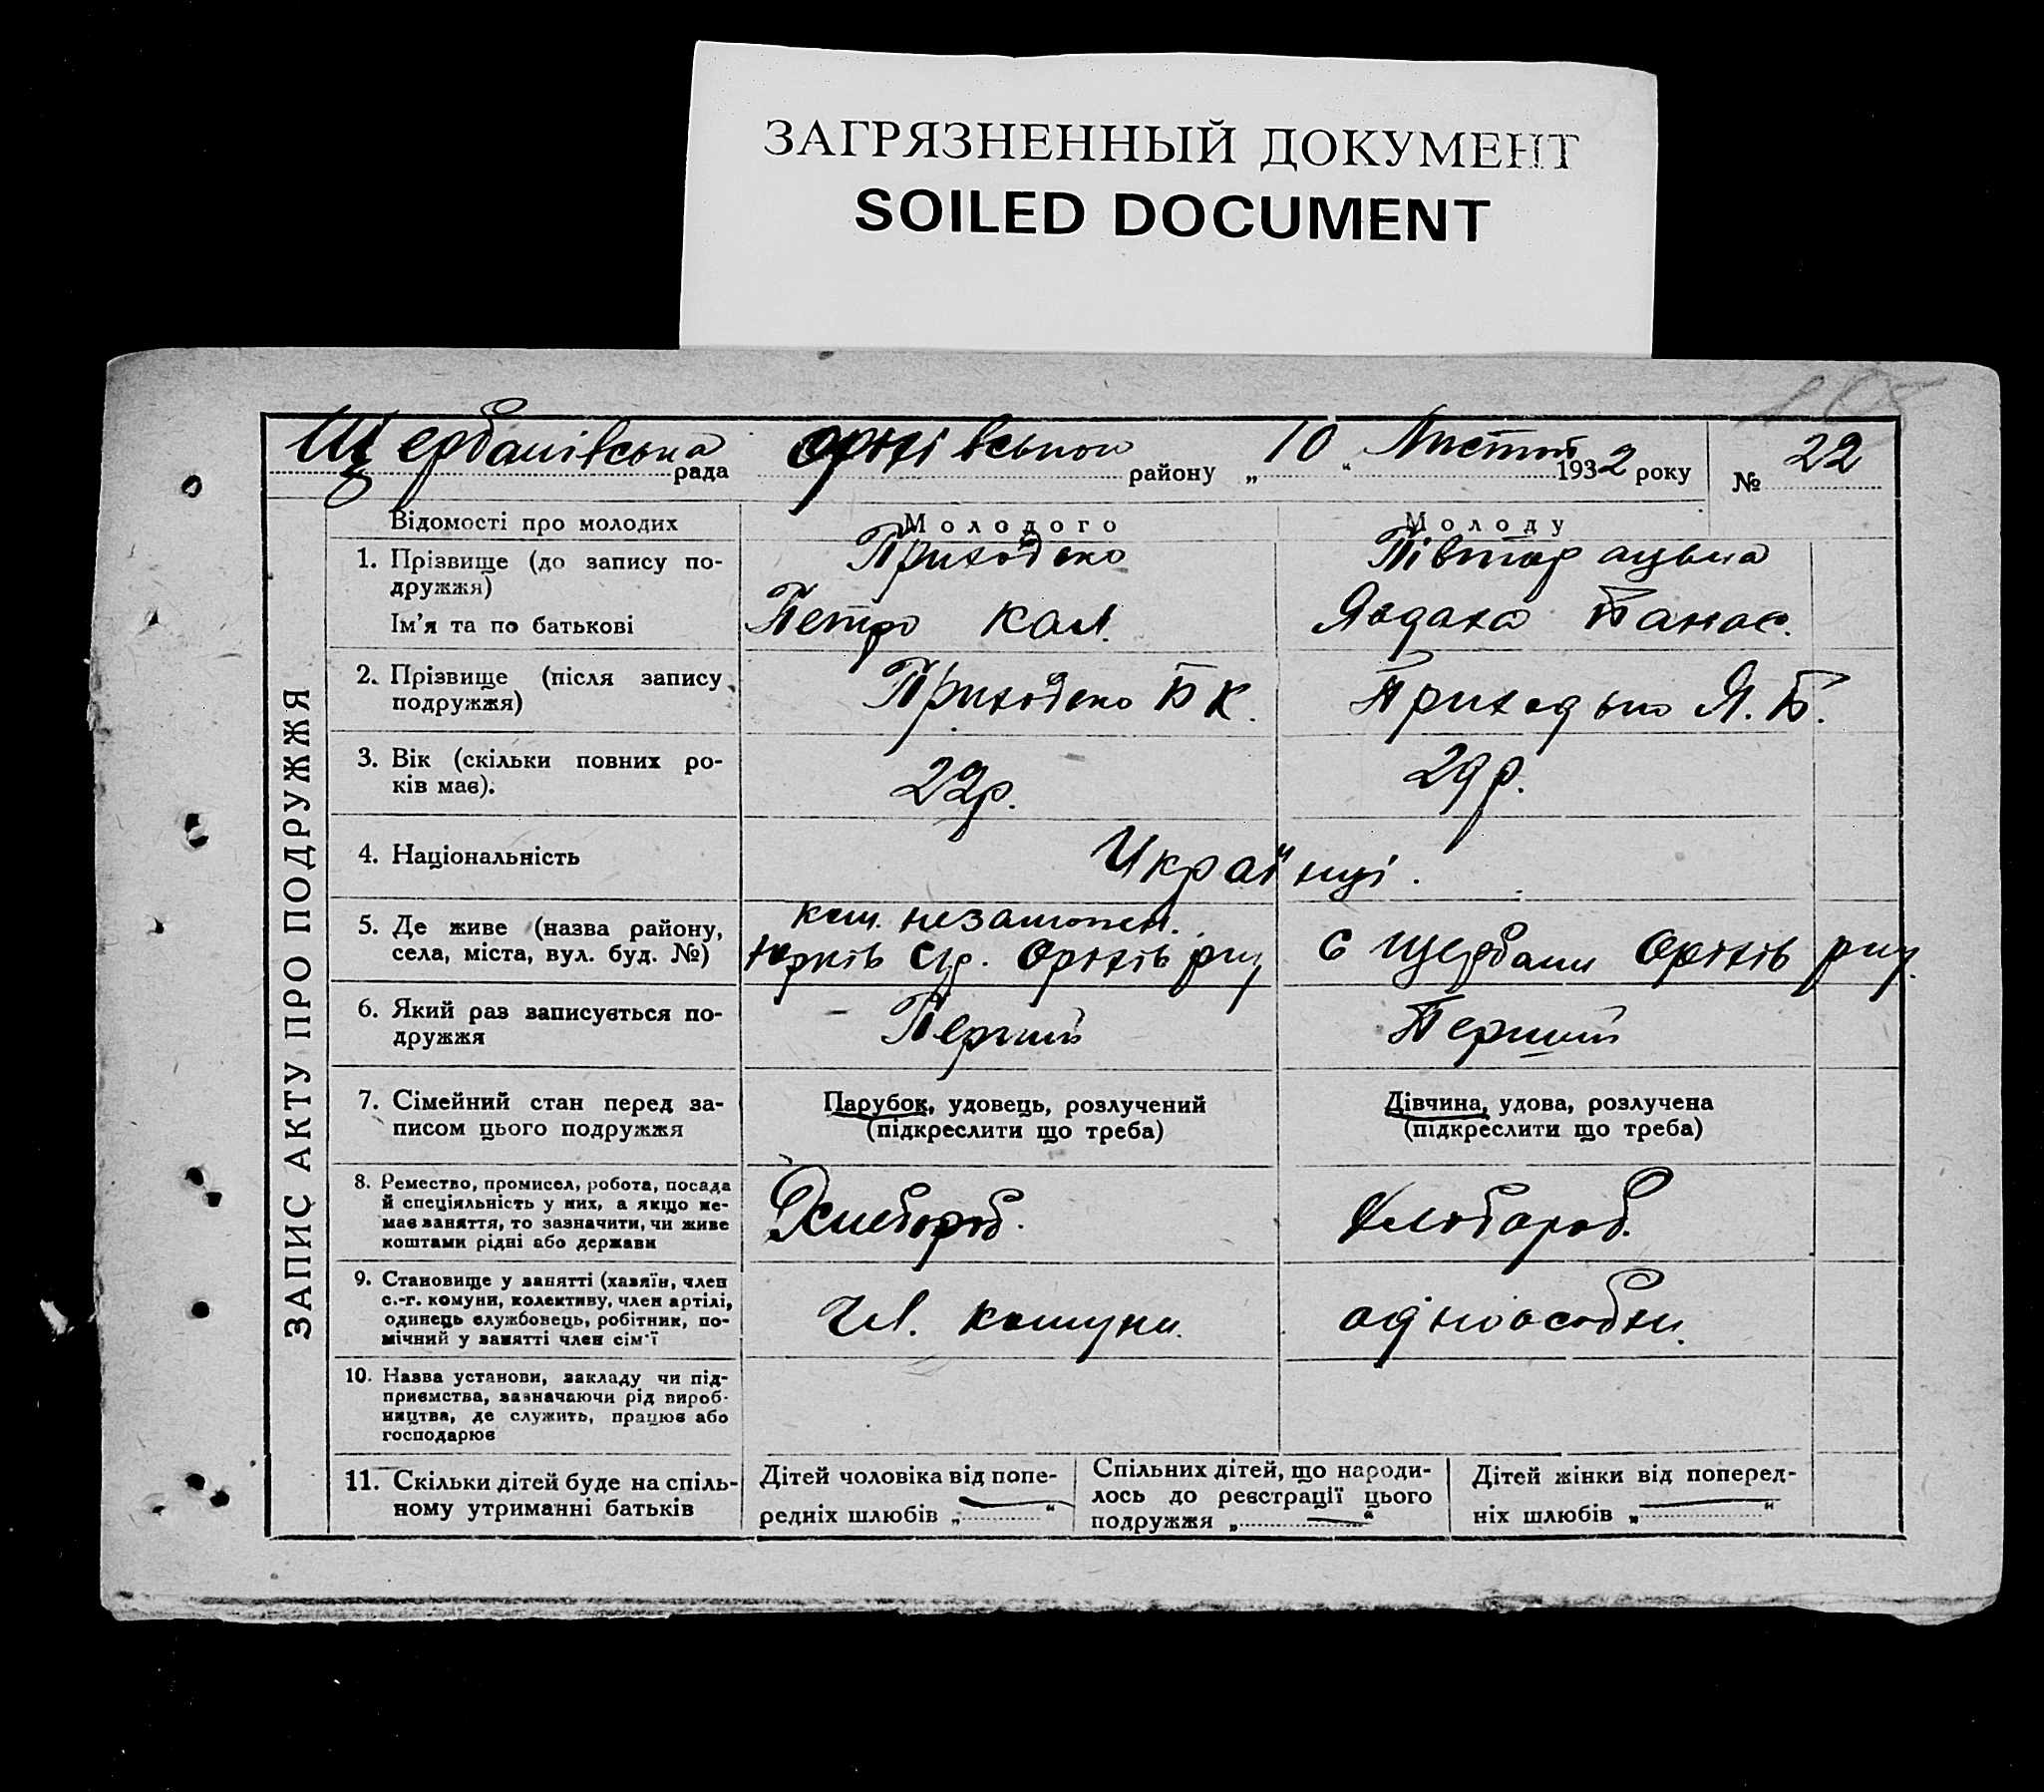 ЗАГРЯЗНЕННЫЙ ДОКУМЕНТ
SOILED DOCUMENT
Щербанівська рада Оріхівськои району „10“ Листоп 1932 року № 22
ЗАПИС АКТУ ПРО ПОДРУЖЖЯ
Відомості про молодих
Молодого
Молоду
1. Прізвище (до запису по-
дружжя)
Приходько
Півторацька
Ім'я та по батькові
Петро Кал.
Явдаха Панас.
2. Прізвище (після запису
подружжя)
Приходько П К.
Приходько Я. П.
3. Вік (скільки повних ро-
ків має).
22р.
29р.
4. Національність
Українці.
5. Де живе (назва району,
села, міста, вул. буд. №)
ком. незаможн.
Юрків с/р. Оріхів
с Щербани Оріхів
6. Який раз записується по-
дружжя
Перший
Перший
7. Сімейний стан перед за-
писом цього подружжя
Парубок, удовець, розлучений
(підкреслити що треба)
Дівчина, удова, розлучена
(підкреслити що треба)
8. Ремество, промисел, робота, посада
й спеціяльність у них, а якщо не-
має заняття, то зазначити, чи живе
коштами рідні або держави
Хлебороб.
Хлебороб.
9. Становище у занятті (хазяїн, член
с.-г. комуни, колективу, член артілі,
одинець службовець, робітник, по-
мічний у занятті член сім'ї
Чл. комуни.
одноособн.
10. Назва установи, закладу чи під-
приємства, зазначаючи рід вироб-
ництва, де служить, працює або
господарює
11. Скільки дітей буде на спіль-
ному утриманні батьків
Дітей чоловіка від попе-
редніх шлюбів „ — “
Спільних дітей, що народи-
лось до реєстрації цього
подружжя „ — “
Дітей жінки від поперед-
ніх шлюбів „ — “